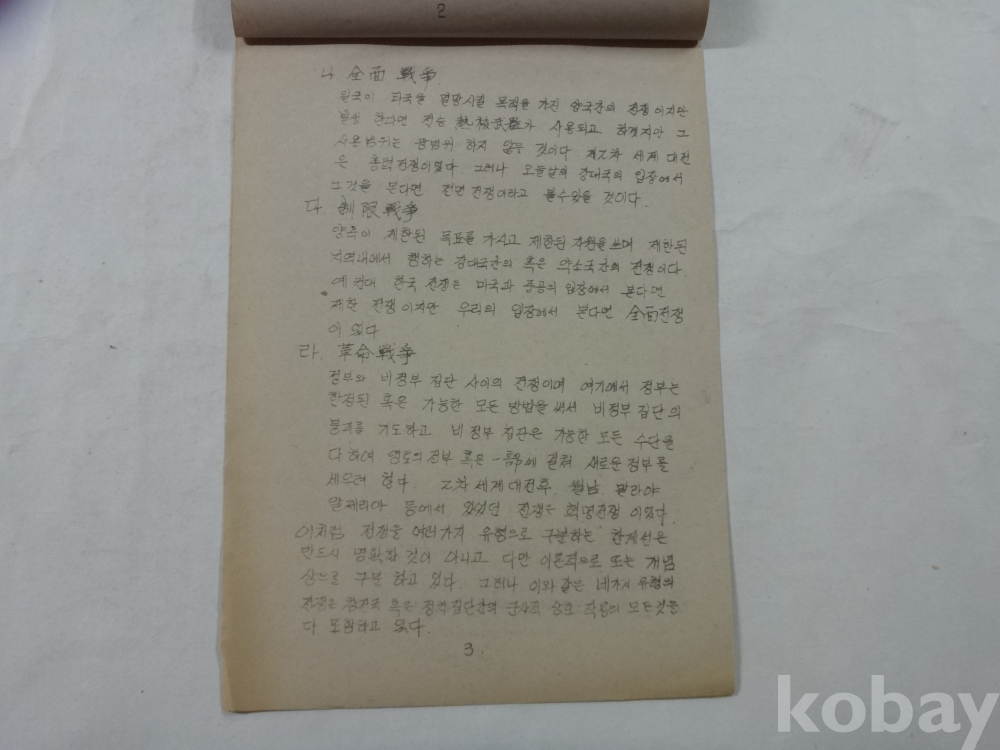 2
나 全面 戰爭
일국이 타국을 멸망시킬 목적을 가진 양국간의 전쟁이지만
발생 한다면 전승 熱核武器가 사용되고 하겠지만 그
사용범위는 광범위 하지 않을 것이다 제2차 세계 대전
은 총력전쟁이였다 그러나 오늘날의 강대국의 입장에서
그것을 본다면 전면전쟁이라고 볼수있을 것이다.
다 制限戰爭
양측이 제한된 목표를 가지고 제한된 자원을 쓰며 제한된
지역내에서 행하는 강대국간의 혹은 약소국간의 전쟁이다.
예컨대 한국 전쟁은 미국과 중공의 입장에서 본다면
제한 전쟁이지만 우리의 입장에서 본다면 全面전쟁
이 있다
라. 革命戰爭
정부와 비정부 집단 사이의 전쟁이며 여기에서 정부는
한정된 혹은 가능한 모든 방법을 써서 비정부 집단의
붕괴를 기도하고 비정부 집단은 가능한 모든 수단을
다하여 영토의 정부 혹은 一部에 걸쳐 새로운 정부를
세으려 한다. 2차 세계대전후 월남 말라야
알제리아 등에서 있었던 전쟁은 혁명전쟁 이였다.
이처럼 전쟁을 여러가지 유형으로 구분하는 한계선은
반드시 명확한 것이 아니고 다만 이론적으로 또는 개념
상으로 구분 하고 있다. 그러나 이와 같은 네가지 유형의
전쟁은 참전국 혹은 정치집단간의 군사적 상호 작용의 모든것을
다 포함하고 있다.
3.
kobay